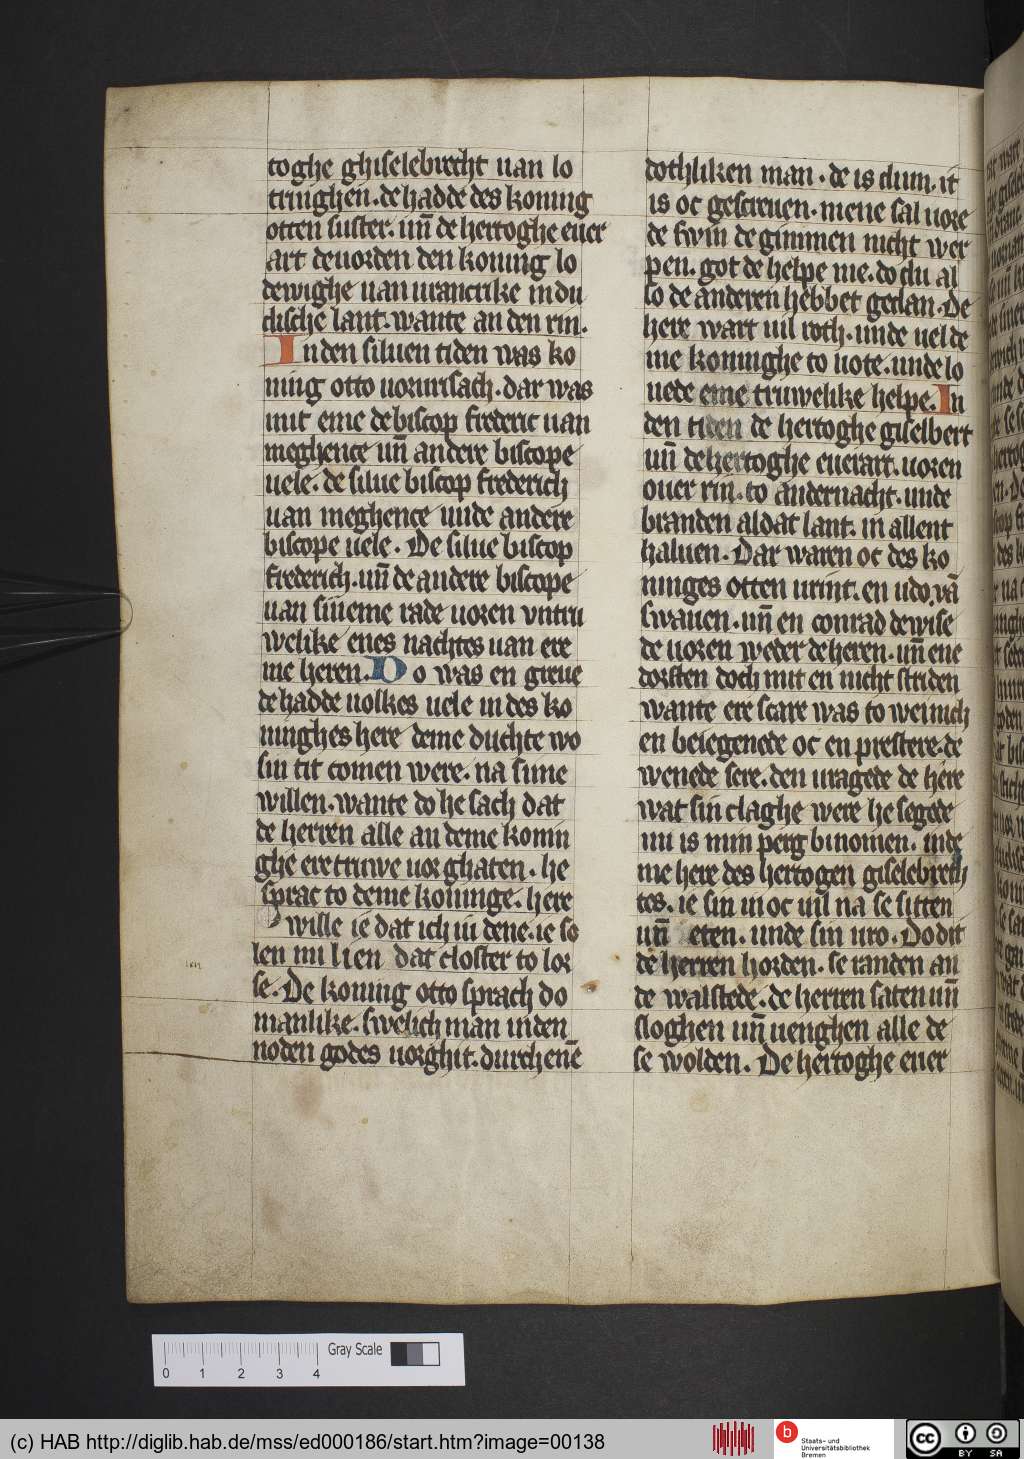 toghe ghiselebrecht uan lo
tringhen. de hadde des koning
otten suster. uñ de hertoghe euer
art deuorden den koning lo
dewighe uan urancrike in du
dische lant. wante an den rin.
In den siluen tiden was ko
ning otto uor urisach. dar was
mit eme de biscop frederic uan
meghence uñ andere biscope
uele. de silue biscop frederich
uan meghence unde andere
biscope uele. De silue biscop
frederich. uñ de andere biscope
uan sineme rade uoren vntru
welike enes nachtes uan ere
me heren. Do was en greue
de hadde uolkes uele in des ko
ninghes here deme duchte wo
sin tit comen were. na sime
willen. wante do he sach dat
de herren alle an deme konin
ghe ere truwe uorghaten. he
sprac to deme koninge. here
wille ie dat ich iu dene. ie so
len mi lien dat closter to lor
se. De koning otto sprach do
manlike. swelich man in den
noden godes uorghit. durch enē
dothliken man. de is dum. it
is oc gescreuen. mene sal uore
de swin de gimmen nicht wer
pen. got de helpe me. do du al
so de anderen hebbet gedan. De
here wart uil roth. unde uel de
me koninghe to uote. unde lo
uede eme truwelike helpe. In
den tiden de hertoghe giselbert
uñ de hertoghe euerart. uoren
ouer rin. to andernacht. unde
branden al dat lant. in allent
haluen. Dar waren oc des ko
ninges otten urint. en udo. vā
swauen. uñ en conrad de wise
de uoren weder de heren. uñ ene
dorsten doch mit en nicht striden
wante ere scare was to weinich
en beiegenede oc en prestere. de
wenede sere. den uragede de here
wat sin claghe were he segede
mi is min perg binomen. inde
me here des hertogen giselebrech
tes. ie sin iu oc uil na se sitten
uñ eten. unde sin uro. Do dit
de herren horden. se randen an
de walstede. de herren saten uñ
sloghen uñ uenghen alle de
se wolden. De hertoghe euer
0 1 2 3 4 Gray Scale
(c) HAB http://diglib.hab.de/mss/ed000186/start.htm?image=00138
Staats- und
Universitätsbibliothek
Bremen
cc BY SA